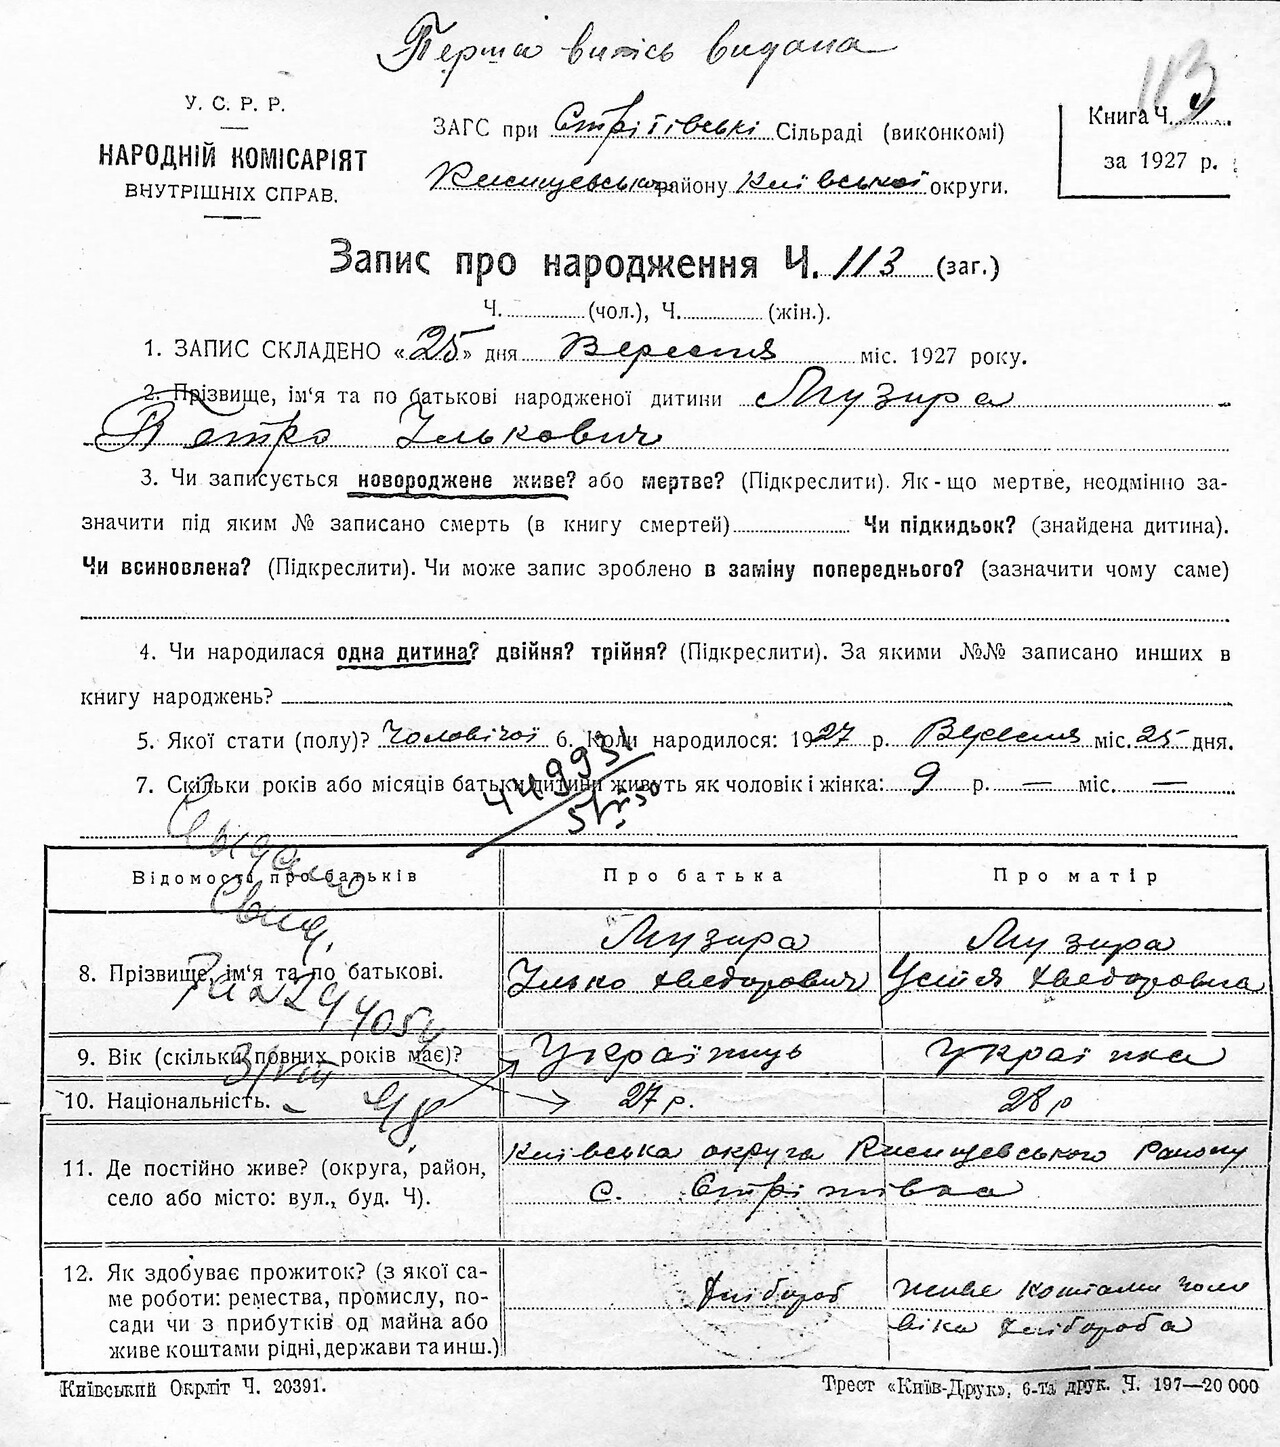 Перша випісь видана
113
У. С. Р. Р.
НАРОДНІЙ КОМІСАРІЯТ
ВНУТРІШНІХ СПРАВ.
ЗАГС при Стрітівські Сільраді (виконкомі)
району Київської округи.
Книга Ч. 4
за 1927 р.
Запис про народження Ч. 113 (заг.)
Ч. (чол.), Ч. (жін.).
1. ЗАПИС СКЛАДЕНО «25» дня Вересня міс. 1927 року.
2. Прізвище, ім‘я та по батькові народженої дитини Музира
Петро Ількович
3. Чи записується новороджене живе? або мертве? (Підкреслити). Як-що мертве, неодмінно за-
значити під яким № записано смерть (в книгу смертей) Чи підкидьок? (знайдена дитина).
Чи всиновлена? (Підкреслити). Чи може запис зроблено в заміну попереднього? (зазначити чому саме)
4. Чи народилася одна дитина? двійня? трійня? (Підкреслити). За якими №№ записано инших в
книгу народжень?
5. Якої стати (полу)? Чоловічої 6. Коли народилося: 1927 р. Вересня міс. 25 дня.
7. Скільки років або місяців батьки дитини живуть як чоловік і жінка: 9 р. — міс. —
449931
Відомости про батьків
Про батька
Про матір
8. Прізвище, ім‘я та по батькові.
Музира
Ілько Хведорович
Музира
Устя Хведоровна
9. Вік (скільки повних років має)?
Українець
Українка
10. Національність.
27 р.
28 р
11. Де постійно живе? (округа, район,
село або місто: вул., буд. Ч).
Київська округа Району
с. Стрітівка
12. Як здобуває прожиток? (з якої са-
ме роботи: ремества, промислу, по-
сади чи з прибутків од майна або
живе коштами рідні, держави та инш.)
Хлібороб
Живе коштами чоло
віка Хлібороба
Київський Окрліт Ч. 20391.
Трест «Київ-Друк», 6-та друк. Ч. 197—20 000